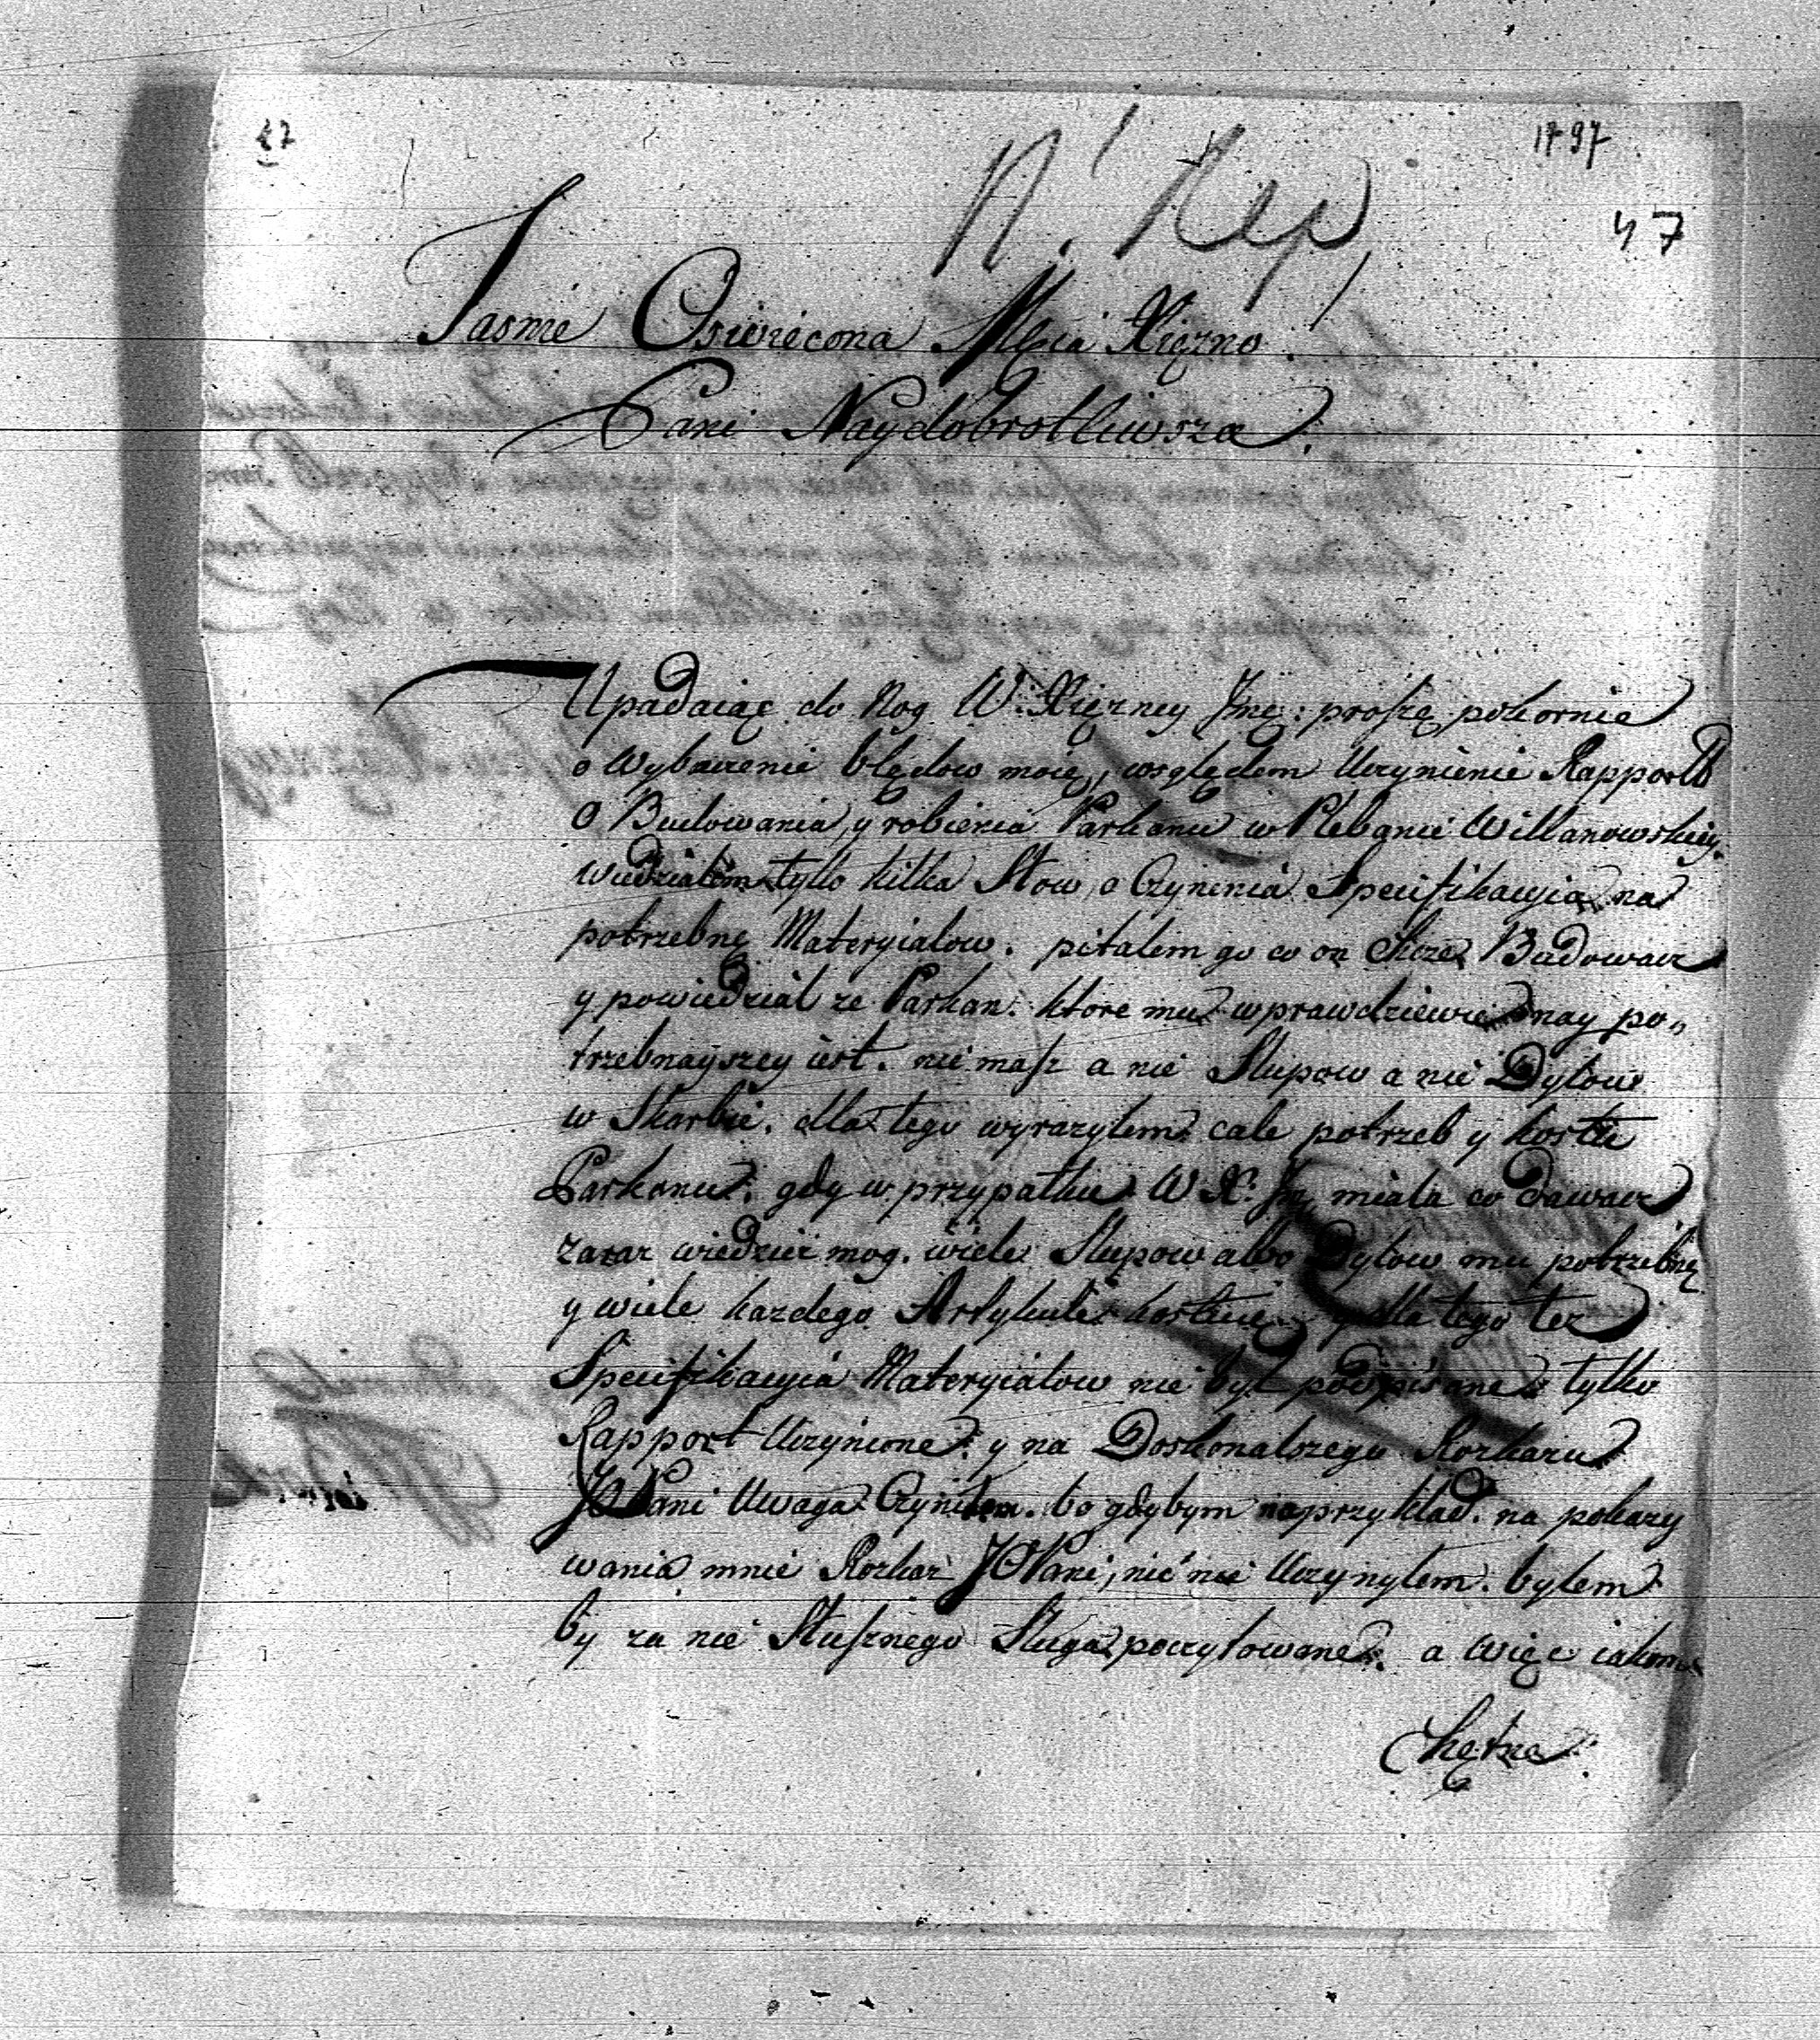 47
1797
N. Rep
47
Jasnie Oswiecona Mścia Xiężno
Pani Naydobrotliwsza.
Upadaiąc do Nog W: Xiężney Jmę: proszę pokornie
o Wybaczenie błędow moię, względem Uczynienie Rapportu
O Budowania y robienia Parkanu w Plebanie Willanowskiey,
wiedziałem tylko kilka Słow, o Czynenia Specifikacyia na
potrzebnę Materyialow. pitalem go co on Chcze Budowacz
y powiedzial ze Parkan. ktore mu wprawdziewie nay po„
trzebnayszey iest. nie masz a nie Slupow a nie Dylow
w Skarbie. dla tego wyrazylem cale potrzeb y koszte
Parkanu: gdy w przypatku W X: Jm, miala co dawacz
zaraz wiedziec mog. wiele Slupow albo Dylow mu potrzebnę
y wiele kazdego Artykule kosztuię. y dla tego tez
Specifikacyia Materyialow nie był podpisane tylko
Rapport Uczynione: y na Doskonalszego Rozkazu
JO Pani Uwaga Czynilem. bo gdybym naprzykład. na pokazy
wania mnie Rozkaz JO Pani, nic nie Uczynylem. bylem
by za nie Słusznego Sługa poczytowane. a więc iakom
Chętne